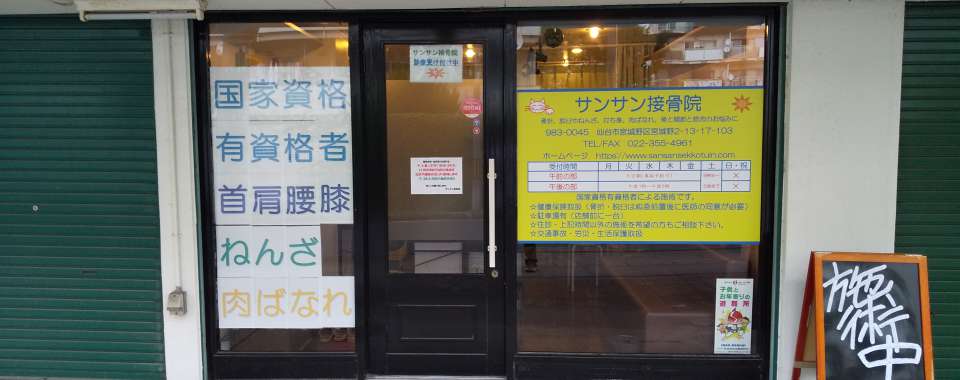 国家資格
有資格者
首肩腰膝
ねんざ
肉ばなれ
サンサン接骨院
診療受け付け中
サンサン接骨院
骨折、脱臼やねんざ、打ち身、肉ばなれ、骨と関節と筋肉のお悩みに
983-0045 仙台市宮城野区宮城野2-13-17-103
TEL/FAX 022-355-4961
ホームページ https://www.sansansekkotuin.com
受付時間 月 火 水 木 金 土 日・祝
午前の部 ×
午後の部 ×
国家資格有資格者による施術です。
☆健康保険取扱(骨折・脱臼は応急処置後に医師の同意が必要)
☆駐車場有(店舗前に一台)
☆往診・上記時間以外の施術を希望の方もご相談下さい。
☆交通事故・労災・生活保護取扱
子供と
お年寄りの
避難所
施術中